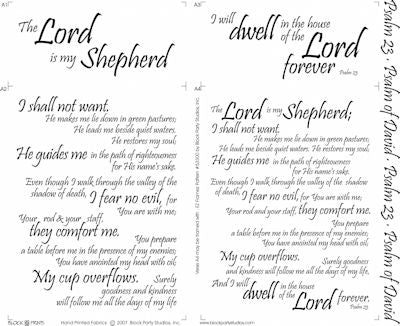 A1
The Lord
is my Shepherd
A2
I shall not want.
He makes me lie down in green pastures;
He leads me beside quiet waters.
He restores my soul;
He guides me in the path of righteousness
for His name's sake.
Even though I walk through the valley of the
shadow of death, I fear no evil, for
You are with me;
Your rod & your staff,
they comfort me.
You prepare
a table before me in the presence of my enemies;
You have anointed my head with oil;
My cup overflows. Surely
goodness and kindness
will follow me all the days of my life
BLOCK PRINTS
Hand Printed Fabrics © 2007 Block Party Studios, Inc.
A3
I will dwell in the house
of the Lord
forever
Psalm 23
A4
The Lord is my Shepherd;
I shall not want.
He makes me lie down in green pastures;
He leads me beside quiet waters. He restores my soul;
He guides me in the path of righteousness
for His name's sake.
Even though I walk through the valley of the shadow
of death, I fear no evil, for You are with me;
Your rod and your staff, they comfort me.
You prepare
a table before me in the presence of my enemies;
You have anointed my head with oil;
My cup overflows. Surely goodness
and kindness will follow me all the days of my life,
And I will dwell in the house
of the Lord forever.
Psalm 23
www.blockpartystudios.com
Psalm 23 · Psalm of David · Psalm 23 · Psalm of David ·